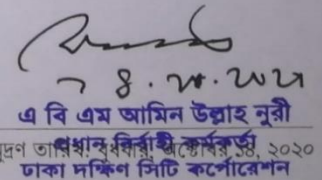 এ বি এম আমিন উল্লাহ নূরী
প্রধান নির্বাহী কর্মকর্তা
মুদ্রণ তারিখ: বুধবার, অক্টোবর ১৪, ২০২০
ঢাকা দক্ষিণ সিটি কর্পোরেশন